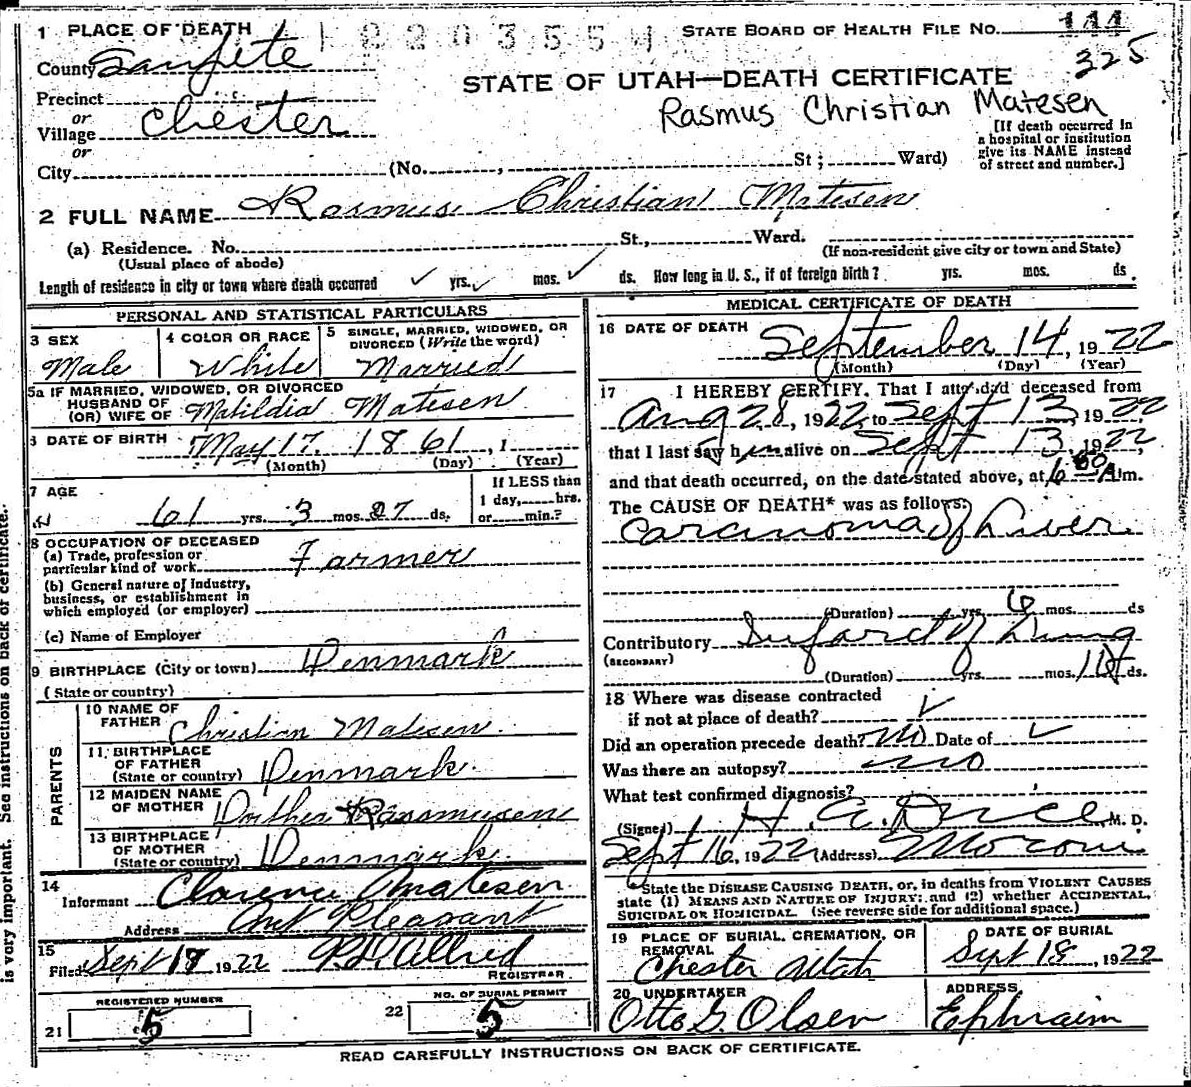 1 PLACE OF DEATH
2 2 0 3 5 5
STATE BOARD OF HEALTH FILE No. 144
325
County Sanpete
STATE OF UTAH—DEATH CERTIFICATE
Rasmus Christian Matesen
Precinct
or
Village Chester
or
City (No. , St ; Ward)
[If death occurred in
a hospital or institution
give its NAME instead
of street and number.]
2 FULL NAME Rasmus Christian Matesen
(a) Residence. No. St., Ward.
(Usual place of abode)
(If non-resident give city or town and State)
Length of residence in city or town where death occurred yrs. mos. ds. How long in U. S., if of foreign birth? yrs. mos. ds.
PERSONAL AND STATISTICAL PARTICULARS
3 SEX
Male
4 COLOR OR RACE
White
5 SINGLE, MARRIED, WIDOWED, OR
DIVORCED (Write the word)
Married
5a IF MARRIED, WIDOWED, OR DIVORCED
HUSBAND OF
(OR) WIFE OF Matildia Matesen
6 DATE OF BIRTH May 17. 1861, 1
(Month) (Day) (Year)
7 AGE
61 yrs. 3 mos. 27 ds.
If LESS than
1 day, hrs.
or min.?
8 OCCUPATION OF DECEASED
(a) Trade, profession or
particular kind of work Farmer
(b) General nature of Industry,
business, or establishment in
which employed (or employer)
(c) Name of Employer
9 BIRTHPLACE (City or town) Denmark
(State or country)
PARENTS
10 NAME OF
FATHER Christian Matesen
11 BIRTHPLACE
OF FATHER
(State or country) Denmark
12 MAIDEN NAME
OF MOTHER Dorthea Rasmusen
13 BIRTHPLACE
OF MOTHER
(State or country) Denmark
14
Informant Clarence Matesen
Address Mt Pleasant
15
Filed Sept 18 1922 Allred
REGISTRAR
REGISTERED NUMBER
21 5
NO. OF BURIAL PERMIT
22 5
MEDICAL CERTIFICATE OF DEATH
16 DATE OF DEATH
September 14, 1922
(Month) (Day) (Year)
17 I HEREBY CERTIFY, That I attended deceased from
Aug 28, 1922 to Sept 13, 1922
that I last saw him alive on Sept 13, 1922,
and that death occurred, on the date stated above, at 6 A.m.
The CAUSE OF DEATH* was as follows:
Carcinoma of Liver
(Duration) yrs. 6 mos. ds
Contributory Infarct of Lung
(SECONDARY)
(Duration) yrs. mos. ds.
18 Where was disease contracted
if not at place of death?
Did an operation precede death? No Date of
Was there an autopsy? no
What test confirmed diagnosis?
(Signed) H. M. D.
Sept 16, 1922 (Address) Moroni
*State the DISEASE CAUSING DEATH, or, in deaths from VIOLENT CAUSES
state (1) MEANS AND NATURE OF INJURY; and (2) whether ACCIDENTAL,
SUICIDAL OR HOMICIDAL. (See reverse side for additional space.)
19 PLACE OF BURIAL, CREMATION, OR
REMOVAL
Chester Utah
DATE OF BURIAL
Sept 18, 1922
20 UNDERTAKER
Otto G. Olsen
ADDRESS
Ephraim
READ CAREFULLY INSTRUCTIONS ON BACK OF CERTIFICATE.
is very important. See instructions on back of certificate.